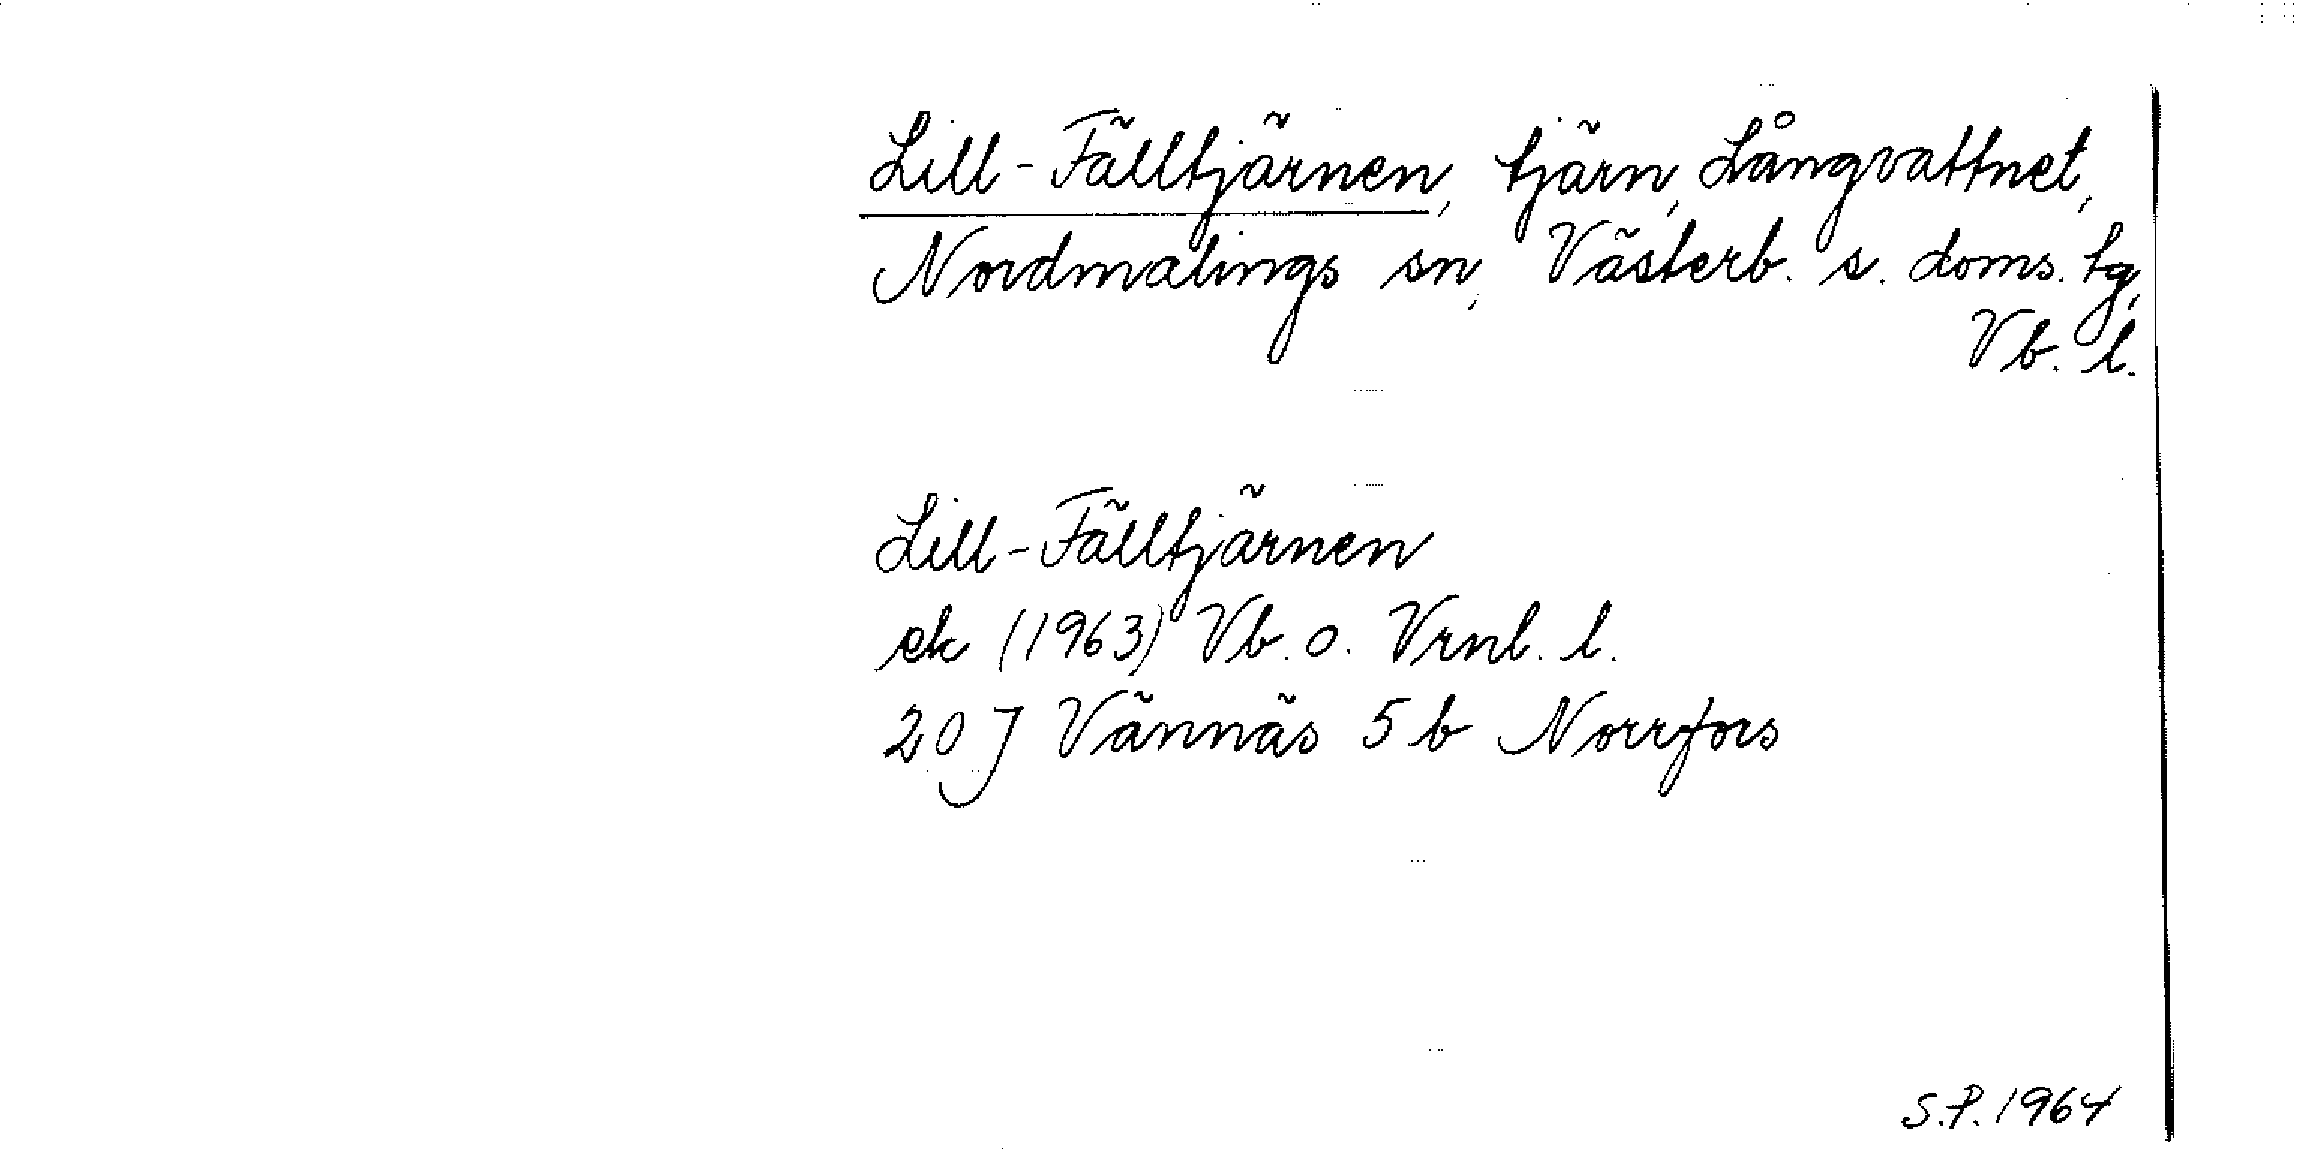 Lill-Fälltjärnen, tjärn, Långvattnet,
Nordmalings sn, Västerb. s. doms. tg,
Vb. l.
Lill-Fälltjärnen
ek (1963) Vb. o. Vrnl. l.
20 J Vännäs 5 b Norrfors
S.P. 1964